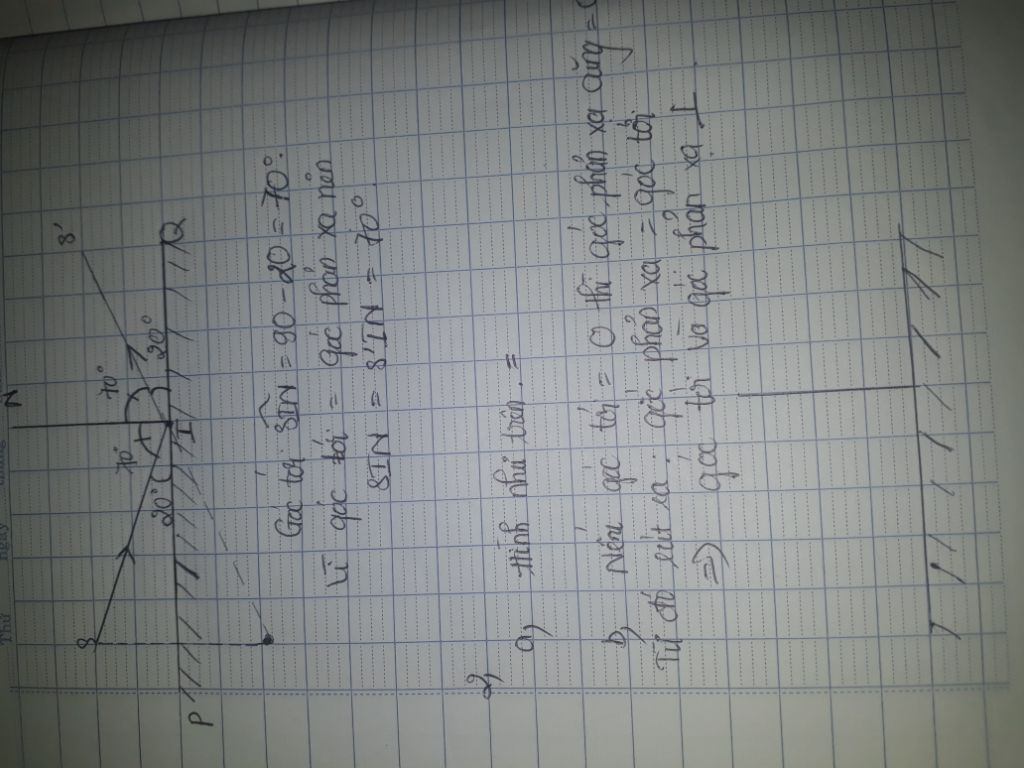 N
S
S'
70°
70°
20°
20°
P
I
Q
Góc tới SIN = 90 - 20 = 70°.
Vì góc tới = góc phản xạ nên
SIN = S'IN = 70°
2)
a) Hình như trên. =
b) Nếu góc tới = 0 thì góc phản xạ cũng =
Từ đó rút ra: góc phản xạ = góc tới
=> góc tới và góc phản xạ I